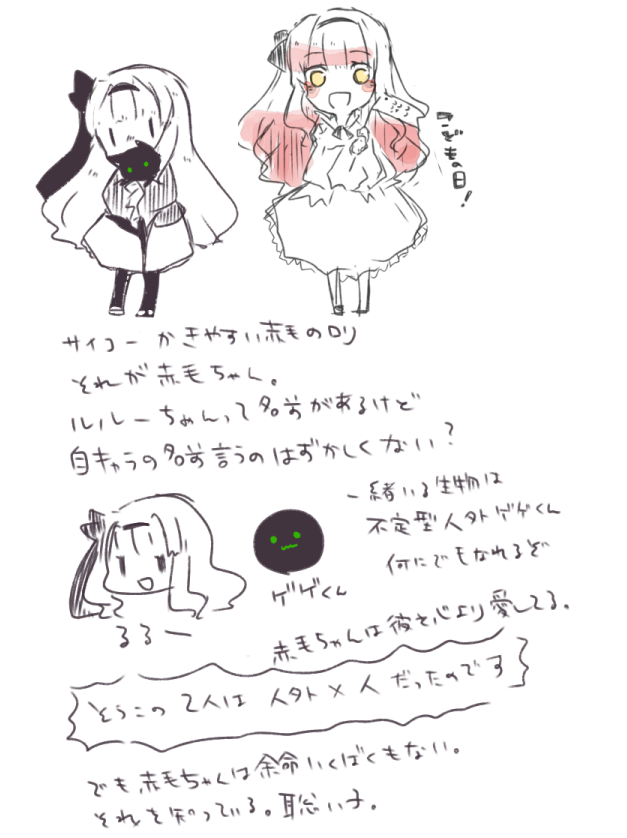 こどもの日!
サイコー かきやすい赤毛のロリ
それが赤毛ちゃん。
ルルーちゃんって名前があるけど
自キャラの名前言うのはずかしくない?
一緒いる生物は
不定型人外ゲゲくん
何にでもなれるぞ
ゲゲくん
るるー
赤毛ちゃんは彼を心より愛してる。
そうこの2人は 人外×人 だったのです
でも赤毛ちゃんは余命いくばくもない。
それを知っている。聡い子。